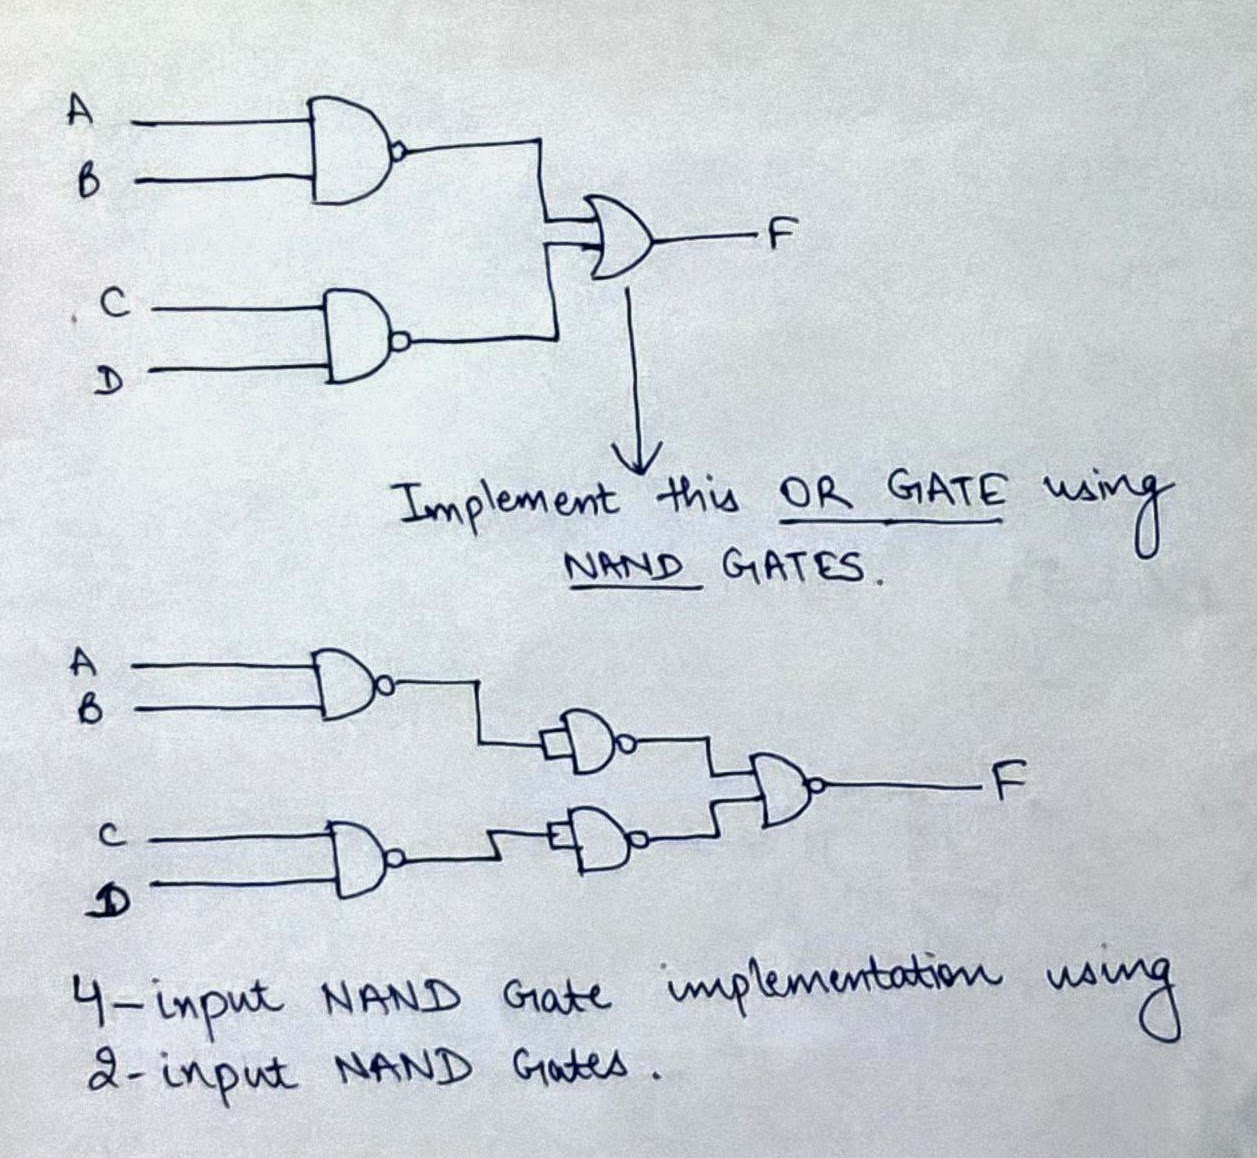 A
B
F
C
D
Implement this OR GATE using
NAND GATES.
A
B
F
C
D
4-input NAND Gate implementation using
2-input NAND Gates.